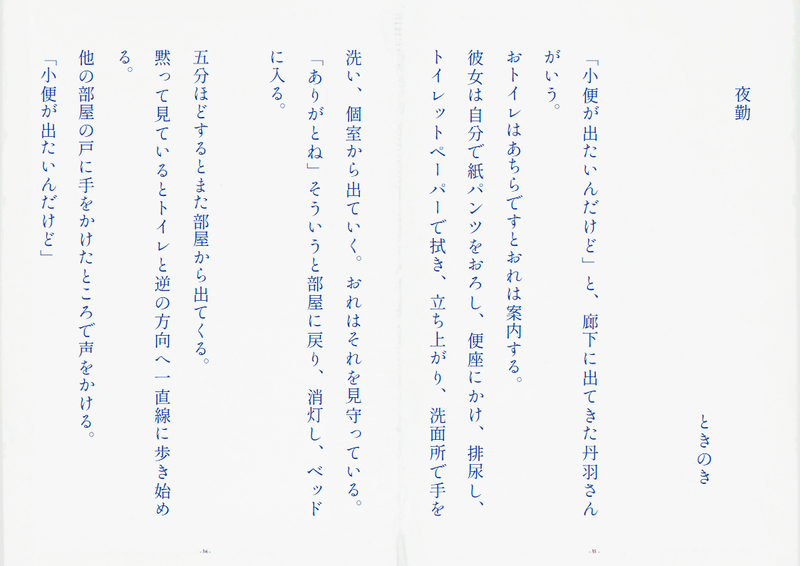 夜勤
ときのき
「小便が出たいんだけど」と、廊下に出てきた丹羽さん
がいう。
おトイレはあちらですとおれは案内する。
彼女は自分で紙パンツをおろし、便座にかけ、排尿し、
トイレットペーパーで拭き、立ち上がり、洗面所で手を
洗い、個室から出ていく。おれはそれを見守っている。
「ありがとね」そういうと部屋に戻り、消灯し、ベッド
に入る。
五分ほどするとまた部屋から出てくる。
黙って見ているとトイレと逆の方向へ一直線に歩き始め
る。
他の部屋の戸に手をかけたところで声をかける。
「小便が出たいんだけど」